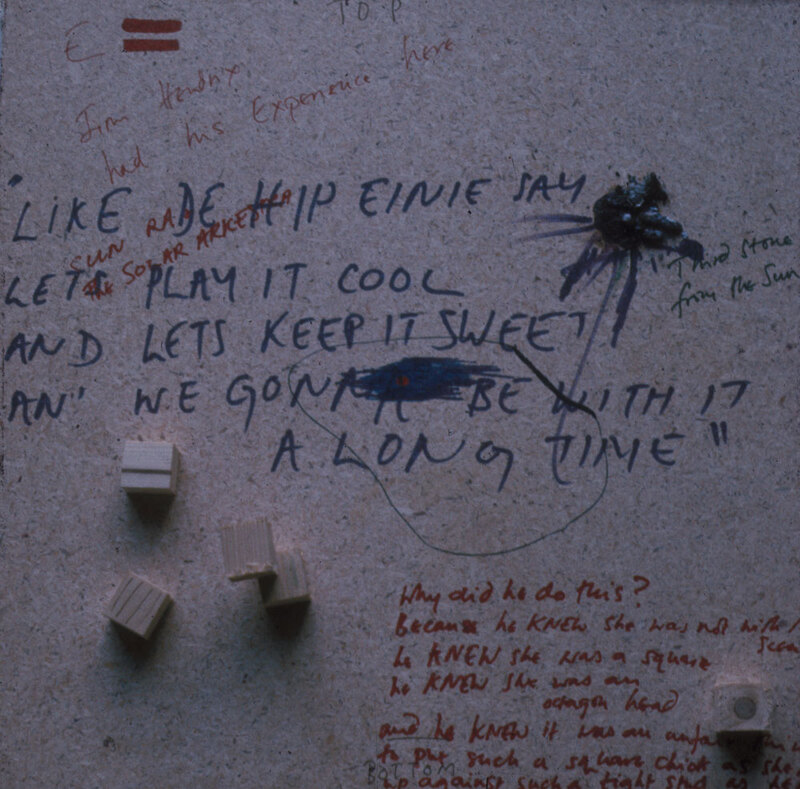 TOP
E =
Jimi Hendrix
had his Experience here
"LIKE DE HIP EINIE SAY
SUN RA
SOLAR ARKESTRA
LETS PLAY IT COOL
"Third Stone
from the Sun
AND LETS KEEP IT SWEET
AN' WE GONNA BE WITH IT
A LONG TIME"
Why did he do this?
Because he KNEW she was not with
he KNEW she was a square
he KNEW she was an
octagon head
and he KNEW it was an
to put such a square chick as she
BOTTOM
up against such a tight stud as